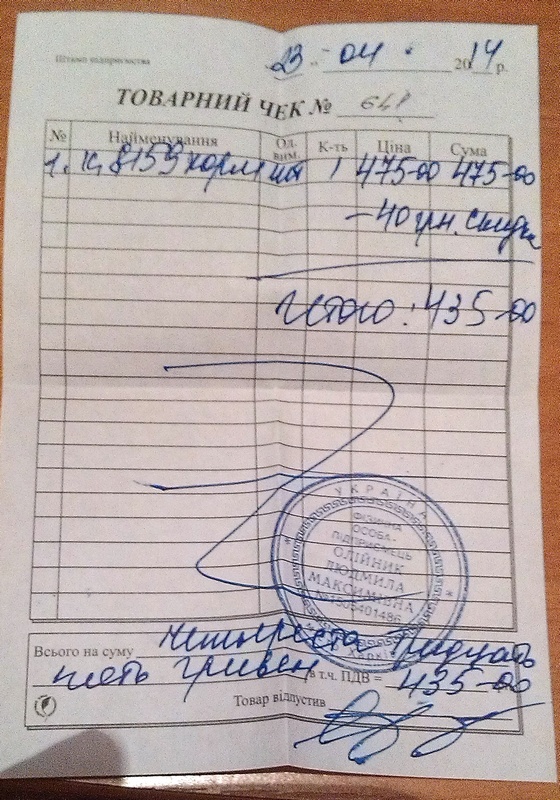 Штамп підприємства
23 " 04 . 2014 р.
ТОВАРНИЙ ЧЕК № 641
№ Найменування Од. вим. К-ть Ціна Сума
1. 8159 1 475-00 475-00
-40 грн. скидка
Итого: 435-00
УКРАЇНА
ФІЗИЧНА
ОСОБА-
ПІДПРИЄМЕЦЬ
ОЛІЙНИК
ЛЮДМИЛА
МАКСИМІВНА
№1505401486
Всього на суму четыреста тридцать
пять гривен в т.ч. ПДВ = 435-00
Товар відпустив